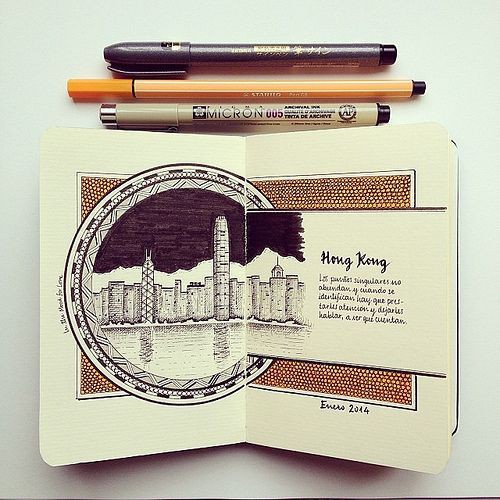 STABILO
MICRON 005
ARCHIVAL INK
TINTA DE ARCHIVE
Hong Kong
Los puntos singulares no
abundan y cuando se
identifican hay que pres-
tarles atención y dejarles
hablar, a ver qué cuentan.
Enero 2014